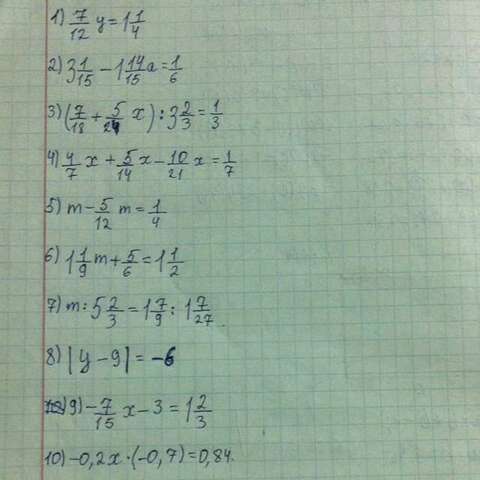 1) 7/12 y = 1 1/4
2) 3 1/15 - 1 14/15 a = 1/6
3) (7/18 + 5/24 x) : 3 2/3 = 1/3
4) 4/7 x + 5/14 x - 10/21 x = 1/7
5) m - 5/12 m = 1/4
6) 1 1/9 m + 5/6 = 1 1/2
7) m : 5 2/3 = 1 7/9 : 1 7/27
8) |y - 9| = -6
9) - 7/15 x - 3 = 1 2/3
10) -0,2x · (-0,7) = 0,84.